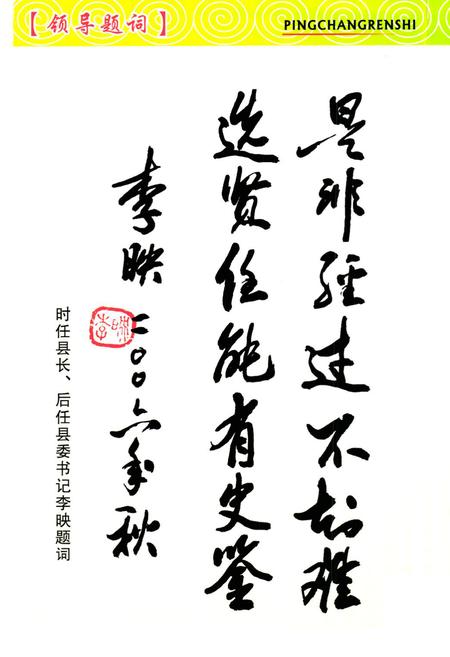 【领导题词】
PINGCHANGRENSHI
是非经过不知难
选贤任能有史鉴
李映 二〇〇六年秋
李映
时任县长、后任县委书记李映题词